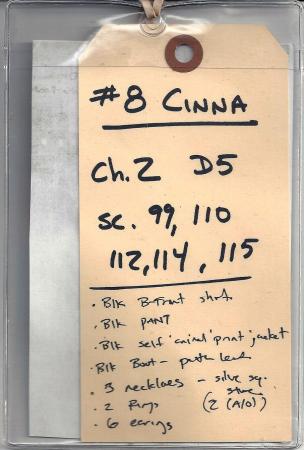 #8 CINNA
Ch. 2 D5
sc. 99, 110
112, 114, 115
· Blk B-Front shirt
· Blk PANT
· Blk self 'animal' print' jacket
· Blk Boot -
· 3 necklaces - silver sq.
· 2 Rings (2 (A/O))
· 6 earings